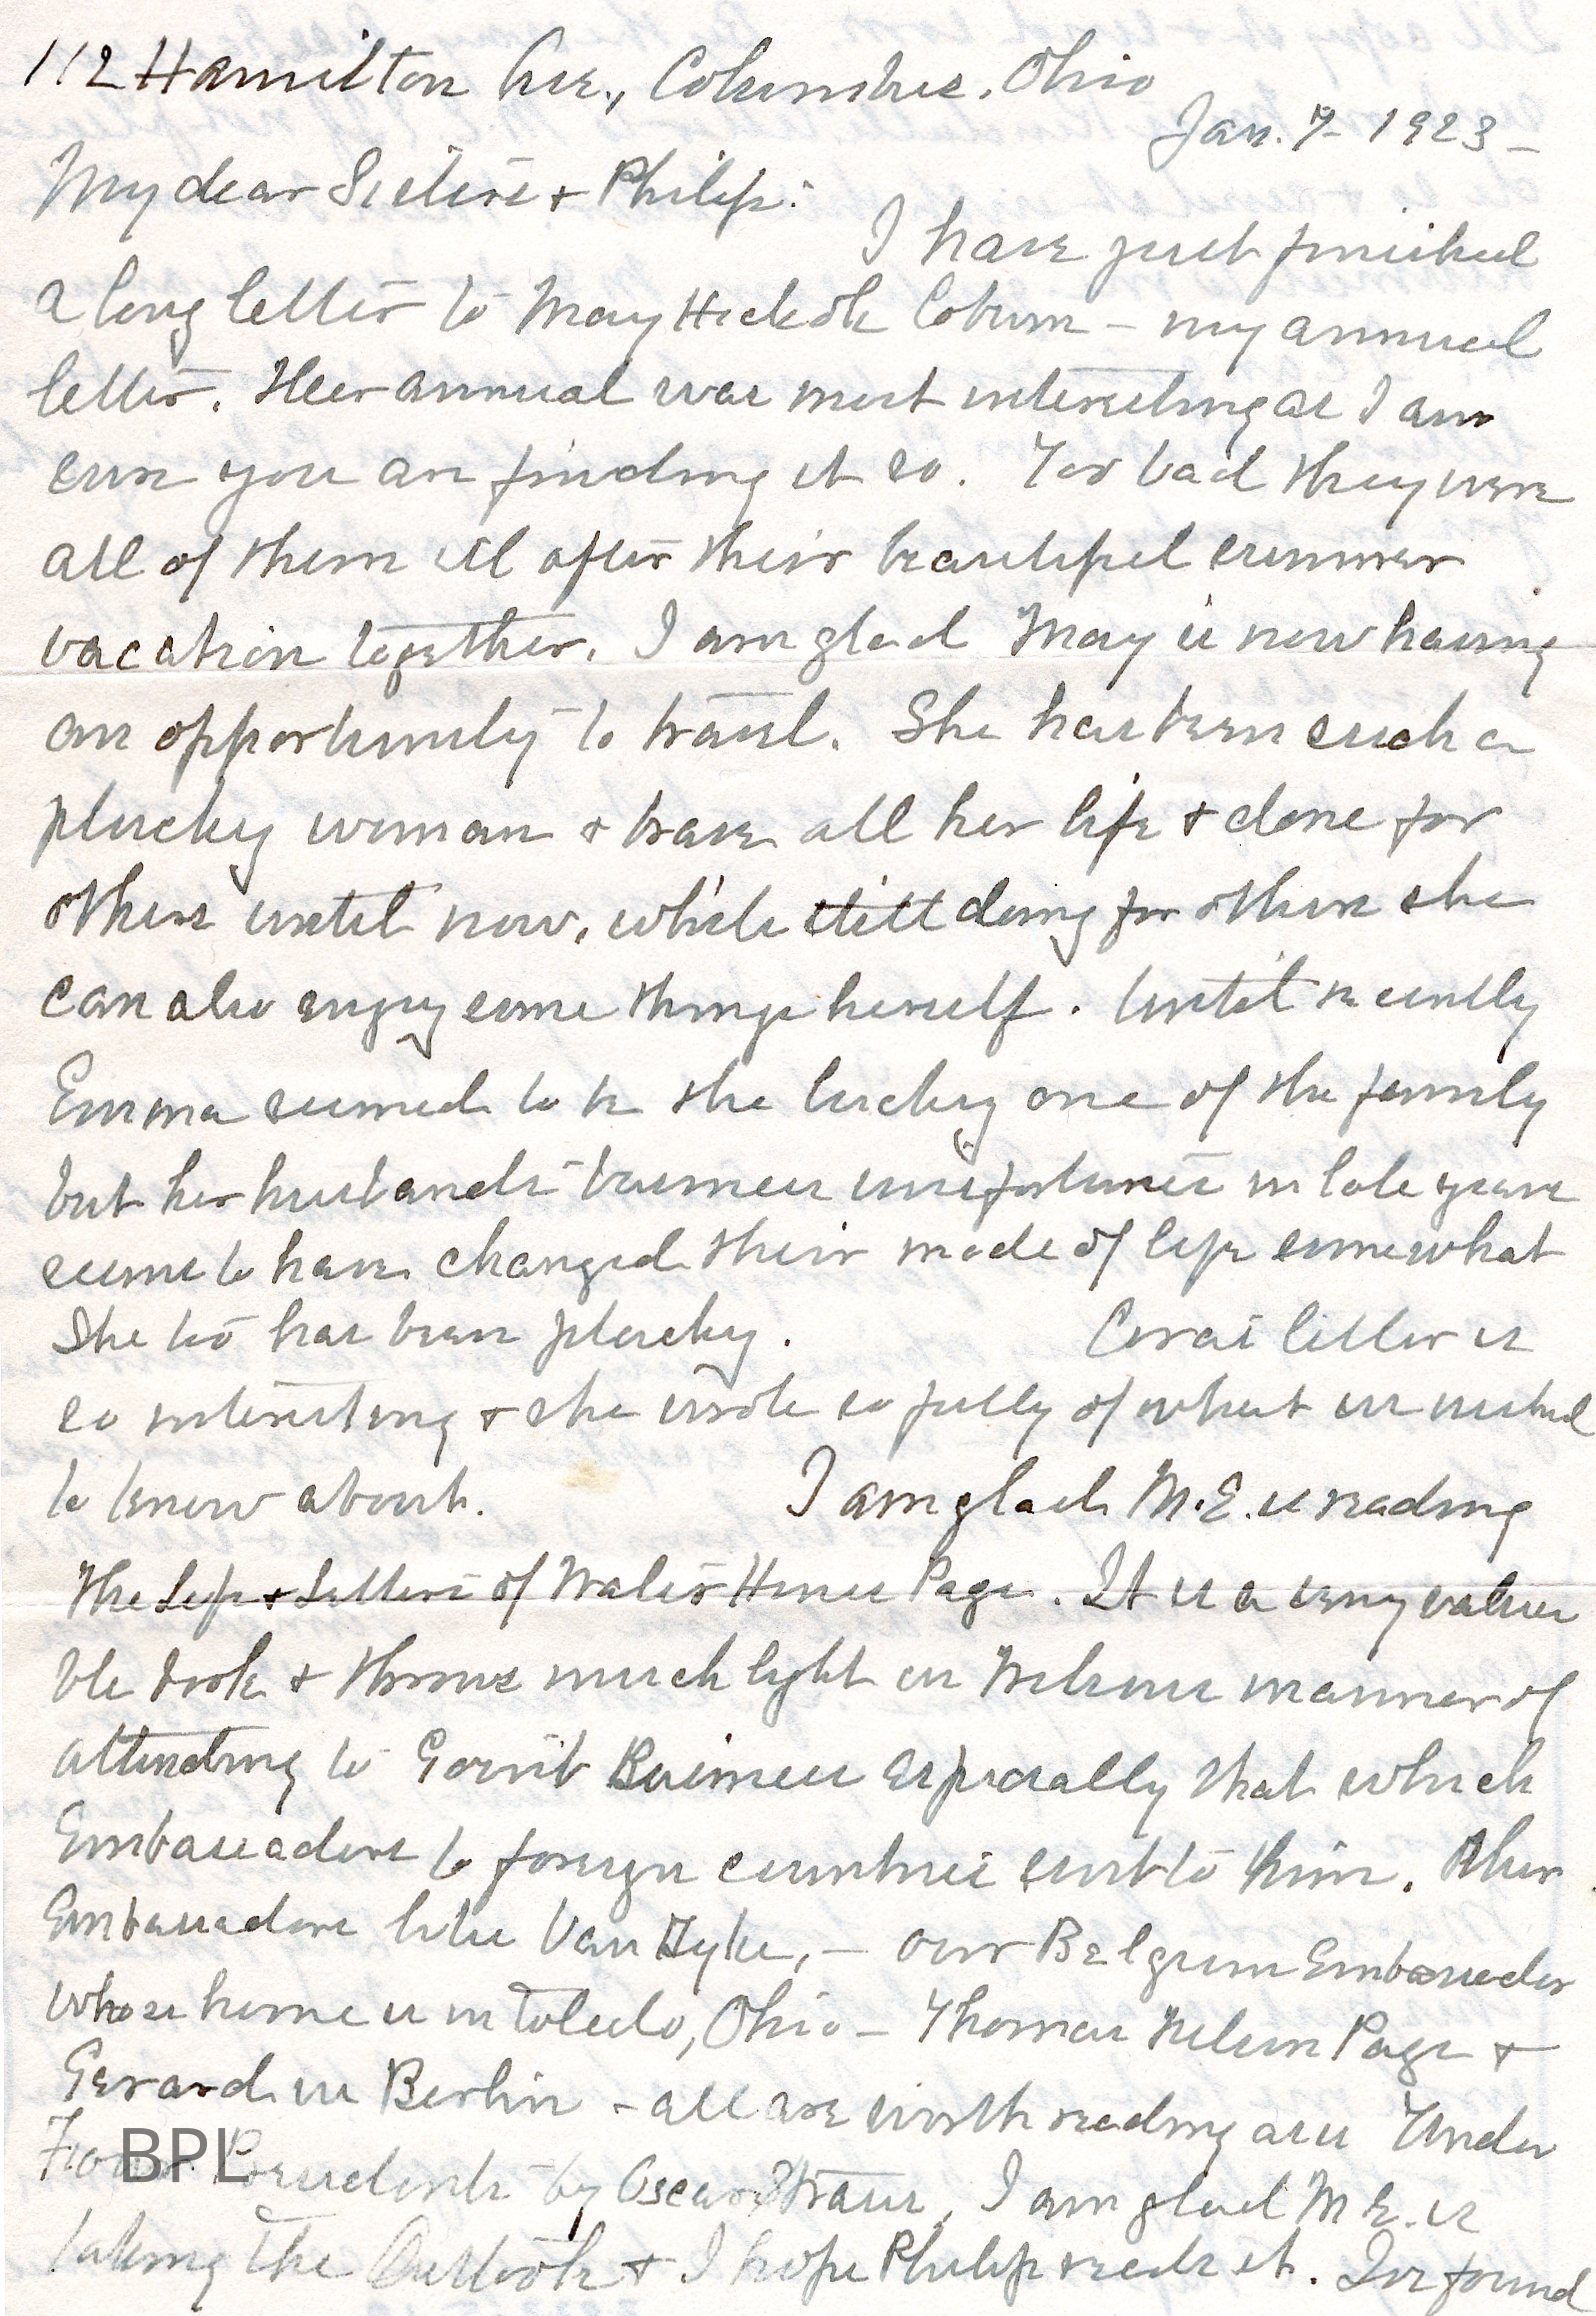 112 Hamilton Ave., Columbus, Ohio
Jan. 7 - 1923 -
My dear Sisters & Philip:
I have just finished
a long letter to May Hickok Coburn - my annual
letter. Her annual was most interesting as I am
sure you are finding it so. Too bad they were
all of them ill after their beautiful summer
vacation together. I am glad May is now having
an opportunity to travel. She has been such a
plucky woman & brave all her life & done for
others until now, while still doing for others she
can also enjoy some things herself. Until recently
Emma seemed to be the lucky one of the family
but her husband's business misfortunes in late years
seems to have changed their mode of life somewhat
She too has been plucky. Cora's letter is
so interesting & she wrote so fully of what we wished
to know about. I am glad M.E. is reading
The Life & Letters of Walter Hines Page. It is a very valua
ble book & throws much light on Wilsons manner of
attending to Gov'nt Business especially that which
Embassadors to foreign countries sent to him. Other
Embassadors like Van Dyke, - our Belgium Embassador
whose home is in Toledo, Ohio - Thomas Nelson Page &
Gerard in Berlin - all are worth reading as is Under
Four Presidents by Oscar Straus. I am glad M.E. is
BPL
taking The Outlook & I hope Philip reads it. I've found